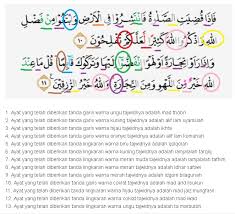 فَإِذَا قُضِيَتِ الصَّلَاةُ فَانْتَشِرُوا فِي الْأَرْضِ وَابْتَغُوا مِنْ فَضْلِ
اللهِ وَاذْكُرُوا اللهَ كَثِيرًا لَعَلَّكُمْ تُفْلِحُونَ ١٠
وَإِذَا رَأَوْا تِجَارَةً أَوْ لَهْوًا انْفَضُّوا إِلَيْهَا وَتَرَكُوكَ قَائِمًا قُلْ مَا عِنْدَ
اللهِ خَيْرٌ مِنَ اللَّهْوِ وَمِنَ التِّجَارَةِ وَاللهُ خَيْرُ الرَّازِقِينَ ١١
1. Ayat yang telah diberikan tanda garis warna ungu tajwidnya adalah mad thobi'i
2. Ayat yang telah diberikan tanda garis warna kuning tajwidnya adalah alif lam syamsiah
3. Ayat yang telah diberikan tanda garis warna tajwidnya adalah ikhfa
4. Ayat yang telah diberikan tanda garis warna tajwidnya adalah alif lam komariah
5. Ayat yang telah diberikan tanda garis warna tajwidnya adalah qalqalah
6. Ayat yang telah diberikan tanda garis warna tajwidnya adalah lam tarqiq
7. Ayat yang telah diberikan tanda garis warna merah muda tajwidnya adalah lam tafhim
8. Ayat yang telah diberikan tanda garis warna merah tajwidnya adalah idzhar
9. Ayat yang telah diberikan tanda garis warna merah tajwidnya adalah idgom bilagunah
11. Ayat yang telah diberikan tanda lingkaran warna tajwidnya adalah mad
12. Ayat yang telah diberikan tanda lingkaran warna coklat tajwidnya adalah mad iwad
13. Ayat yang telah diberikan tanda lingkaran warna tajwidnya adalah